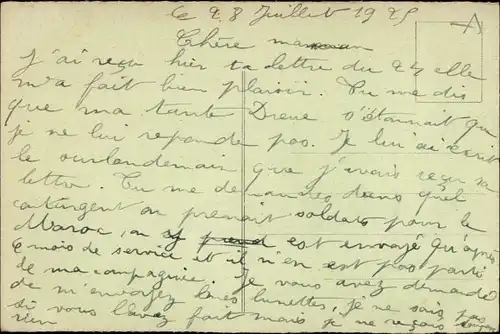 Le 28 Juillet 1925
Chère maman
J'ai reçu hier ta lettre du 24 elle
m'a fait bien plaisir. Tu me dis
que ma tante Dreue s'étonnait que
je ne lui reponde pas. Je lui ai écrit
le surlandemain que j'avais reçu sa
lettre. Tu me demandes dans quel
contingent on prenait soldats pour le
Maroc, on est envoyé qu'après
6 mois de service et il n'en est pas parti
de ma compagnie. Je vous avez demandé
de m'envoyez les lunettes, je ne sais pas
si vous l'avez fait mais je ne reçois
rien